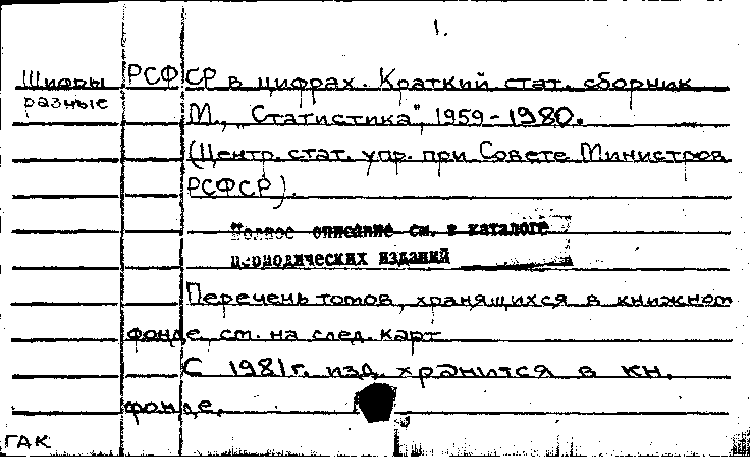 1.
Шифры разные
РСФСР в цифрах. Краткий стат. сборник
М., "Статистика", 1959-1980.
(Центр. стат. упр. при Совете Министров
РСФСР).
Полное описание см. в каталоге
периодических изданий
Перечень томов, хранящихся в книжном
фонде, см. на след. карт.
С 1981г. изд. хранится в кн.
фонде.
ГАК